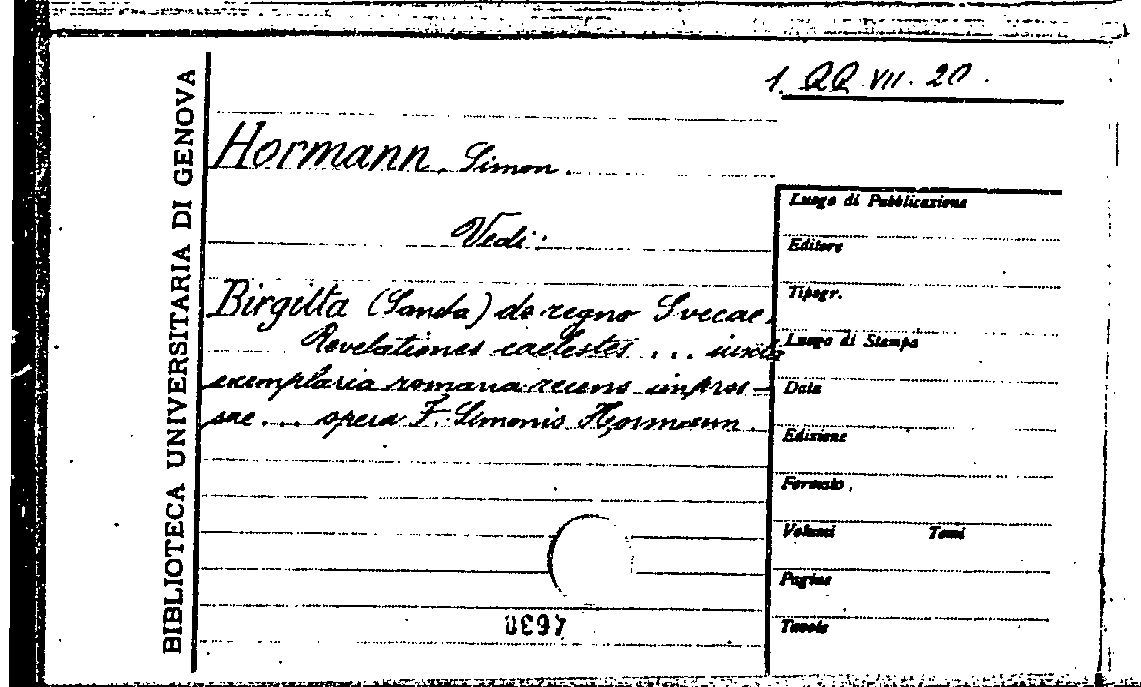 1. QQ. VII. 20.
BIBLIOTECA UNIVERSITARIA DI GENOVA
Hormann, Simon.
Vedi:
Birgitta (Sancta) de regno Svecae.
Revelationes caelestes ... iuxta
exemplaria romana recens impres-
sae ... opera F. Simonis Hörmann.
Luogo di Pubblicazione
Editore
Tipogr.
Luogo di Stampa
Data
Edizione
Formato
Volumi Tomi
Pagine
Tavole